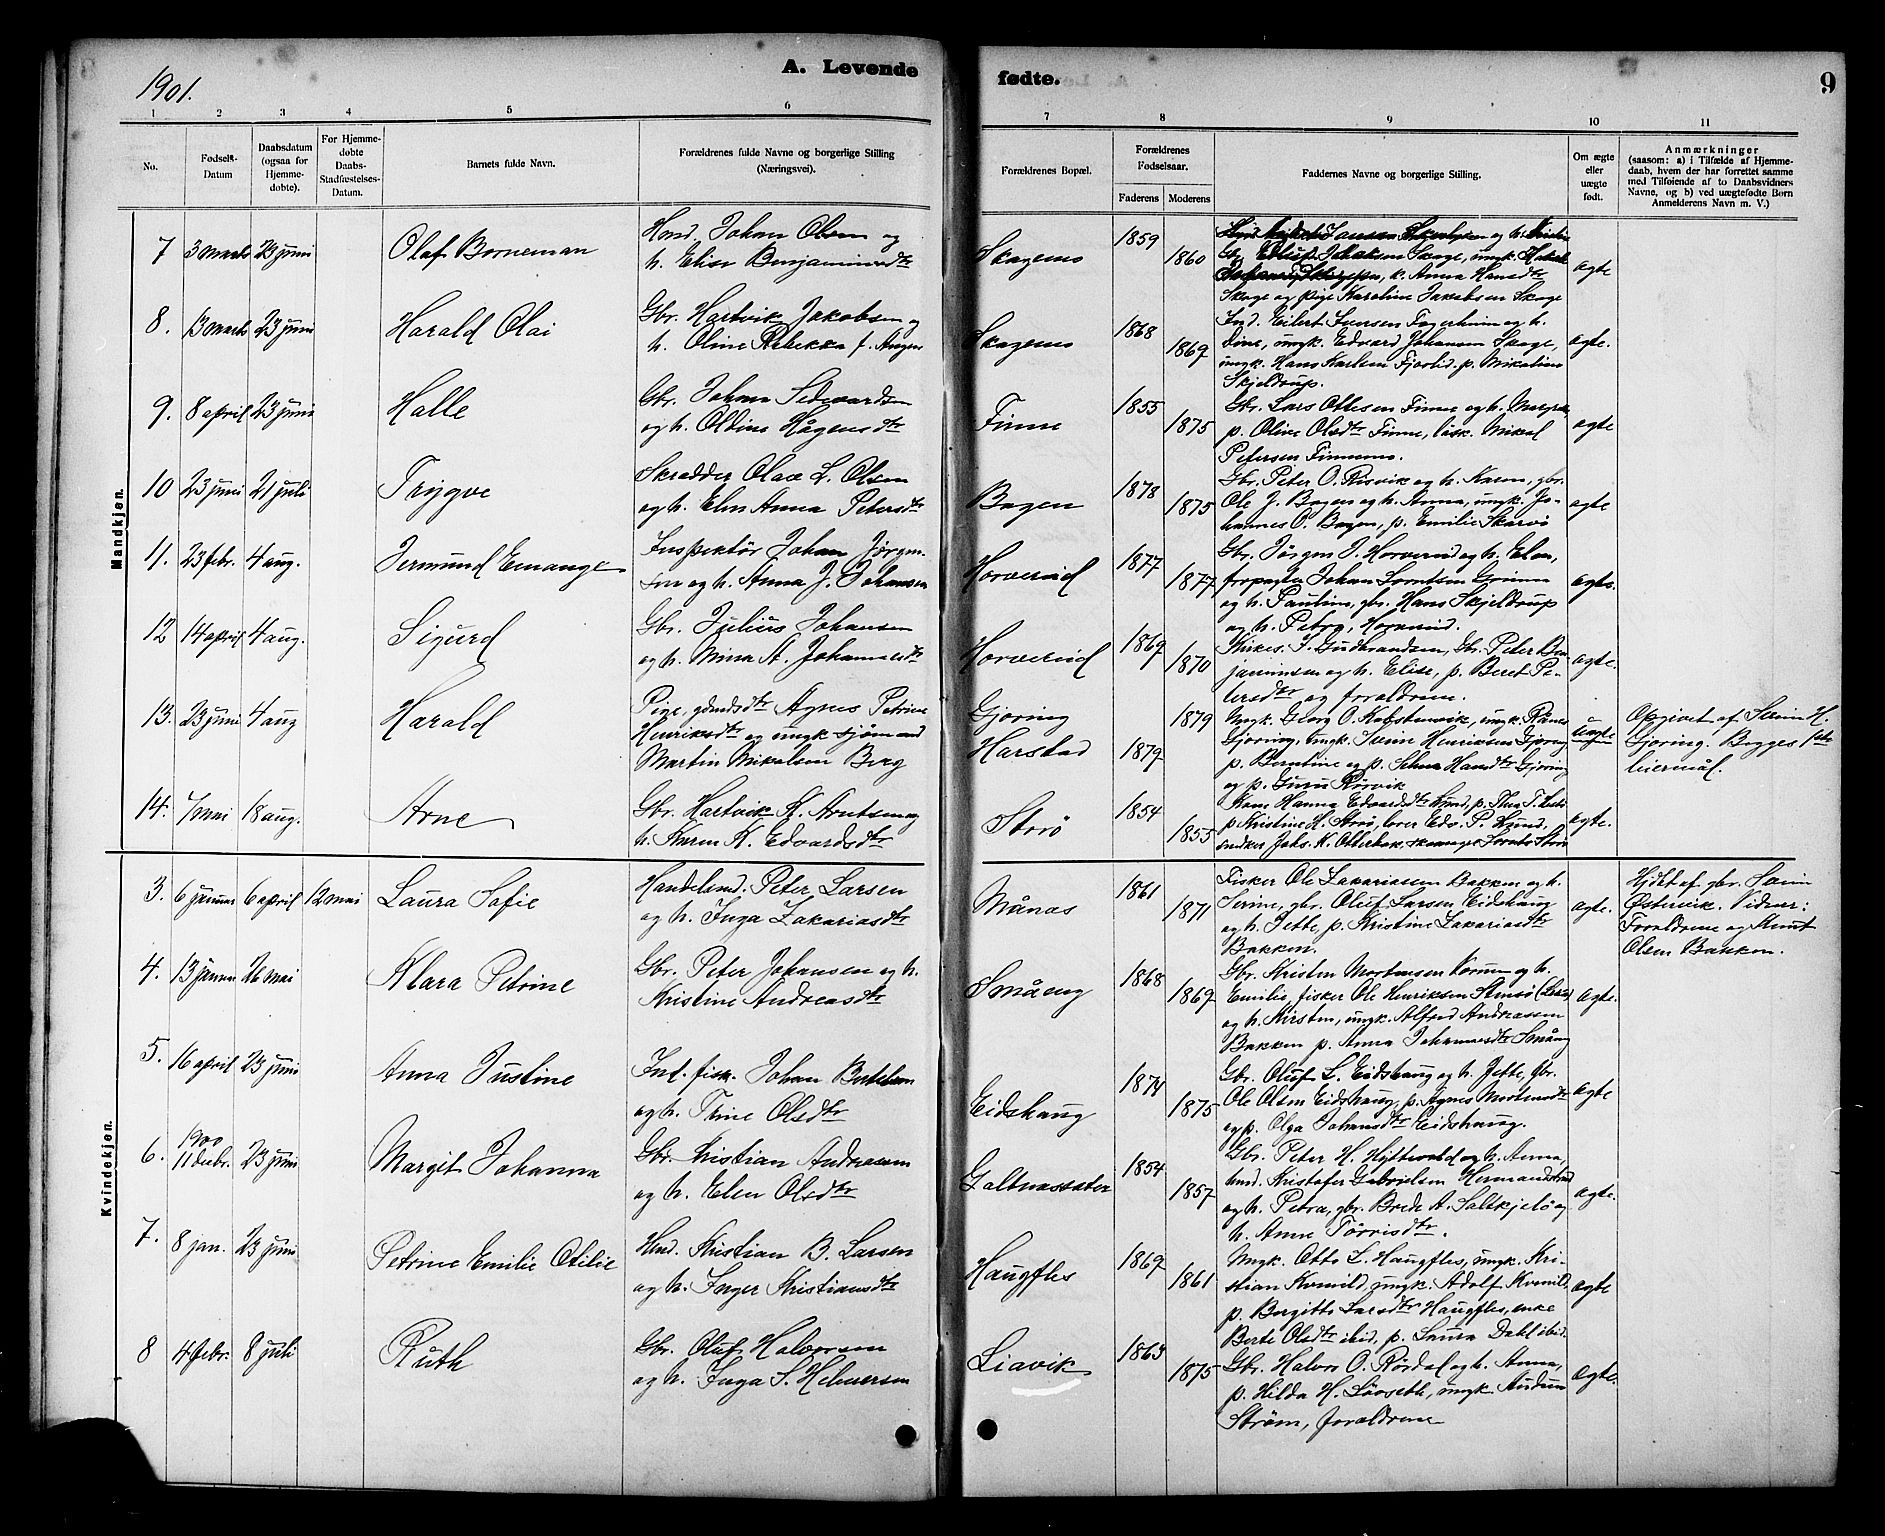 1901.
A. Levende
fødte.
9
1 2 3 4 5 6 7 8 9 10 11
No.
Fødsels-
Datum
Daabsdatum
(ogsaa for
Hjemme-
døbte).
For Hjemme-
døbte
Daabs-
Stadfæstelses-
Datum.
Barnets fulde Navn.
Forældrenes fulde Navne og borgerlige Stilling
(Næringsvei).
Forældrenes Bopæl.
Forældrenes
Fødselsaar.
Faderens Moderens
Faddernes Navne og borgerlige Stilling.
Om ægte
eller
uægte
født.
Anmærkninger
(saasom: a) i Tilfælde af Hjemme-
daab, hvem der har forrettet samme
med Tilføiende af to Daabsvidners
Navne, og b) ved uægtefødte Børn
Anmelderens Navn m. V.)
Mandkjøn.
7 3 marts 23 juni Olaf Borneman
Hmd. Johan Olsen og
h. Elise Benjaminsdtr
Skagemo 1859 1860
Skage, ungk.
k. Anna Hansdtr
Skage og pige Karoline Jakobsen Skage
ægte
8. 13 marts 23 juni Harald Olai
Gbr. Hartvik Jakobsen og
h. Oline Rebekka f. 
Skagemo 1868 1869
Ind. Eilert Jensen Fagerheim og h.
Dine, ungk. Edvard Johansen Skage,
ungk. Hans Karlsen Fjorlid, p. Mikaline
Skjeldrup.
ægte.
9. 8 april 23 juni Halle
Gbr. Johan Sedvardsen
og h. Oldine Hågensdtr
Finne 1855 1875
Gbr. Lars Ottesen Finne og h.
p. Oline Olsdtr Finne, Mikal
Petersen Finnemo.
ægte
10 23 juni 21 juli Trygve
Skrædder Olai L. Olsen
og h. Elen Anna Petersdtr
Bogen 1878 1875
Gbr. Peter O. Risvik og h. Karen, gbr.
Ole J. Bogen og h. Anna, ungk. Jo-
hannes O. Bogen, p. Emilie Skarvø
ægte
11. 23 febr. 4 aug. Jermund Emange
Inspektør Johan Jørgen-
sen og h. Anna J. Johansen
Horvereid 1877 1877
Gbr. Jørgen J. Horvereid og h. Elen,
forpagter Johan Lorntsen Grinna
og h. Pauline, gbr. Hans Skjeldrup
og h. Petra, Horvereid.
ægte.
12 14 april 4 aug. Sigurd
Gbr. Julius Johansen
og h. Mina A. Johannesdtr
Horvereid 1869 1870
Kirkes. J. Gudbrandsen, Gbr. Peter Ben-
jaminsen og h. Elise, p. Beret Pe-
tersdtr og forældrene.
ægte.
13. 23 juni 4 aug Harald
Pige, gdmdsdtr Agnes Petrine
Henriksdtr og ungk. sjømand
Martin Mikalsen Berg
Gjøring
Harstad 1879 1879
Ungk. Georg O. Kobstervik, ungk.
Gjøring, ungk. Svein Henriksen Gjøring
p. Berntine og p. Hansdtr Gjøring
og p. Guru Rørvik
uægte
Opgivet af Svein H.
Gjøring. Begges 1ste
leiermål.
14. 7 mai 18 aug. Arne
Gbr. Hartvik A. Arntsen og
h. Karen K. Edvardsdtr
Storø 1854 1855
Kone Hanna Edvardsdtr p. Thea T.
p. Kristine H. Storø, lærer Edv. P.
snedker Johs. K. Otterbæk,
ægte.
Kvindekjøn.
3. 6 januar 6 april 12 mai Laura Sofie
Handelsmd. Peter Larsen
og h. Inga Zakariasdtr
Månæs 1861 1871
Fisker Ole Zakariassen Bakken og h.
Serine, gbr. Oluf Larsen Eidshaug
og h. Jette, p. Kristine Zakariasdtr
Bakken.
ægte.
Hjdbt af gbr. Svein
Østervik. Vidner:
Forældrene og Knut
Olsen Bakken.
4. 13 januar 26 mai Klara Petrine
Gbr. Peter Johansen og h.
Kristine Andreasdtr
Småeng 1868 1869
Gbr. Kristen Mortensen Korum og h.
Emilie, fisker Ole Henriksen
og h. Kirsten, ungk. Alfred Andreassen
Bakken p. Anna Johannesdtr Småeng
ægte.
5. 16 april 23 juni Anna Justine
Ind. fisk. Johan Bertelsen
og h. Trine Olsdtr
Eidshaug 1874 1875
Gbr. Oluf L. Eidshaug og h. Jette, gbr.
Ole Olsen Eidshaug, p. Agnes Mortensdtr
og p. Olga Johansdtr Eidshaug.
ægte
6. 1900 11 decbr. 23 juni Margit Johanna
Gbr. Kristian Andreassen
og h. Elen Olsdtr
Galtnæssæter 1854 1857
Gbr. Peter H. Hyttevold og h. Anna,
hmd. Kristofer Gabrielsen Hermandstrand
og h. Petra, gbr. Brede A. Saltkjelø og
h. Anne Tørrisdtr.
ægte.
7. 8 jan. 23 juni Petrine Emilie Otilie
Hmd. Kristian B. Larsen
og h. Inger Kristiansdtr
Haugfles 1869 1861
Ungk. Otto L. Haugfles, ungk. Kri-
stian Kvmild, ungk. Adolf Kvmild,
p. Bergitte Larsdtr Haugfles, enke
Berte Olsdtr ibid, p. Laura Dahl ibid.
ægte
8 4 febr. 8 juli Ruth
Gbr. Oluf Halvorsen
og h. Inga S. Helmersen
Liavik 1863 1875
Gbr. Halvor O. Rørdal og h. Anna,
p. Hilda H. Løvseth, ungk. Audun
Strøm, forældrene
ægte.